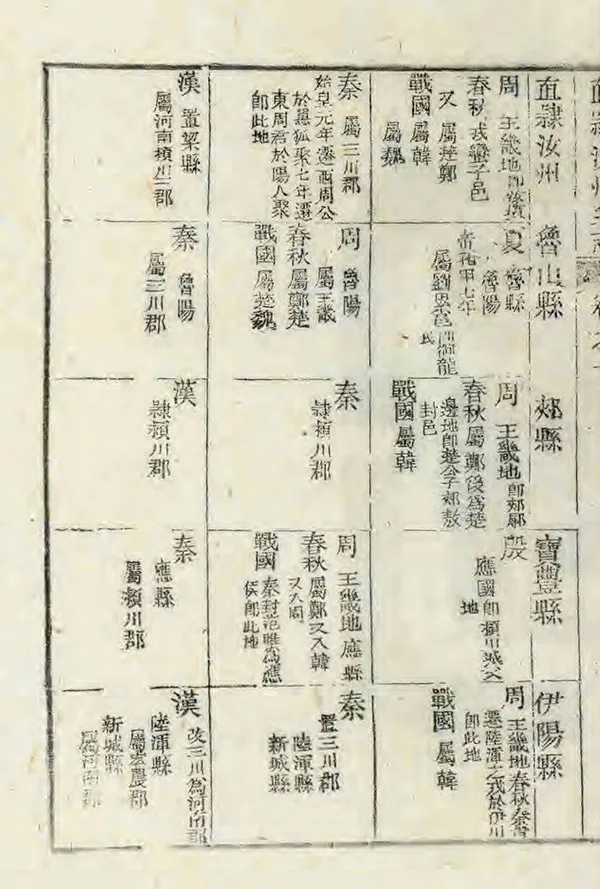 直隸汝州
周 王畿地即
春秋 戎蠻子邑
又 屬楚鄭
戰國 屬韓
屬魏
秦 屬三川郡
始皇元年遷西周公
於𢠸狐聚七年遷
東周君於陽人聚
即此地
漢 置梁縣
屬河南潁川二郡
魯山縣
夏 魯縣
魯陽
甲七年
屬劉累邑
御龍
氏
周 魯陽
屬王畿
春秋 屬鄭楚
戰國 屬楚魏
秦 魯陽
屬三川郡
郟縣
周 王畿地 即郟鄏
春秋屬鄭後爲楚
邊地即楚公子郟敖
封邑
戰國屬韓
秦
隸潁川郡
漢
隸潁川郡
寶豐縣
殷
應國 即潁川城父
地
周 王畿地 應縣
春秋 屬鄭又入韓
又入周
戰國 秦封范睢爲應
侯即此地
秦
應縣
屬潁川郡
伊陽縣
周 王畿地春秋秦晉
遷陸渾之戎於伊川
即此地
戰國 屬韓
秦
置三川郡
陸渾縣
新城縣
漢 改三川爲河南郡
陸渾縣
屬宏農郡
新城縣
屬河南郡